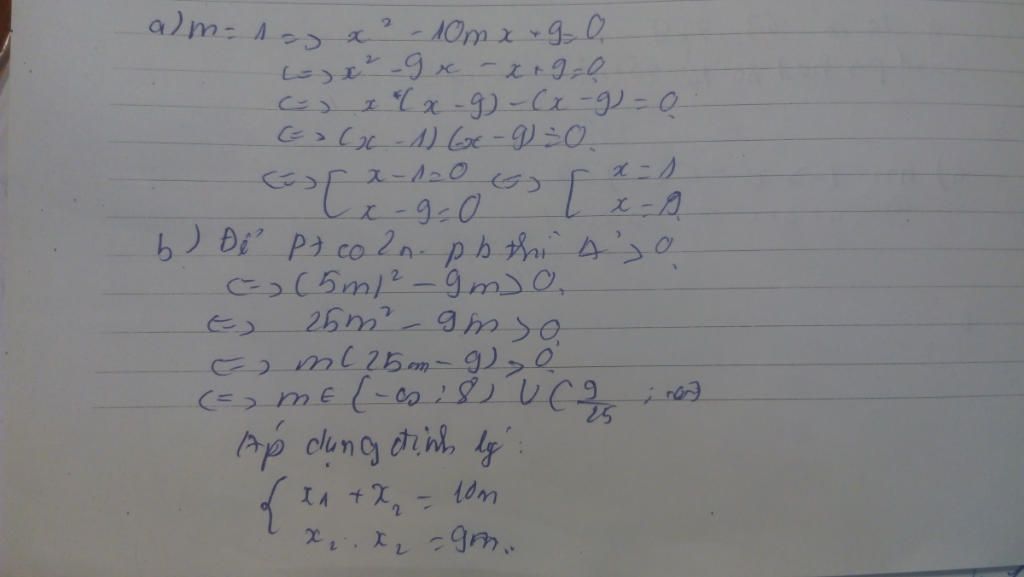 a) m = 1 => x² - 10mx + 9 = 0
<=> x² - 9x - x + 9 = 0
<=> x(x - 9) - (x - 9) = 0
<=> (x - 1)(x - 9) = 0
<=> [ x - 1 = 0 <=> [ x = 1
x - 9 = 0 x = 9
b) Để pt có 2n. pb thì Δ' > 0
<=> (5m)² - 9m > 0
<=> 25m² - 9m > 0
<=> m(25m - 9) > 0
<=> m ∈ (-∞; 8) ∪ (9/25;
Áp dụng định lý:
{ x1 + x2 = 10m
x2 . x2 = 9m.